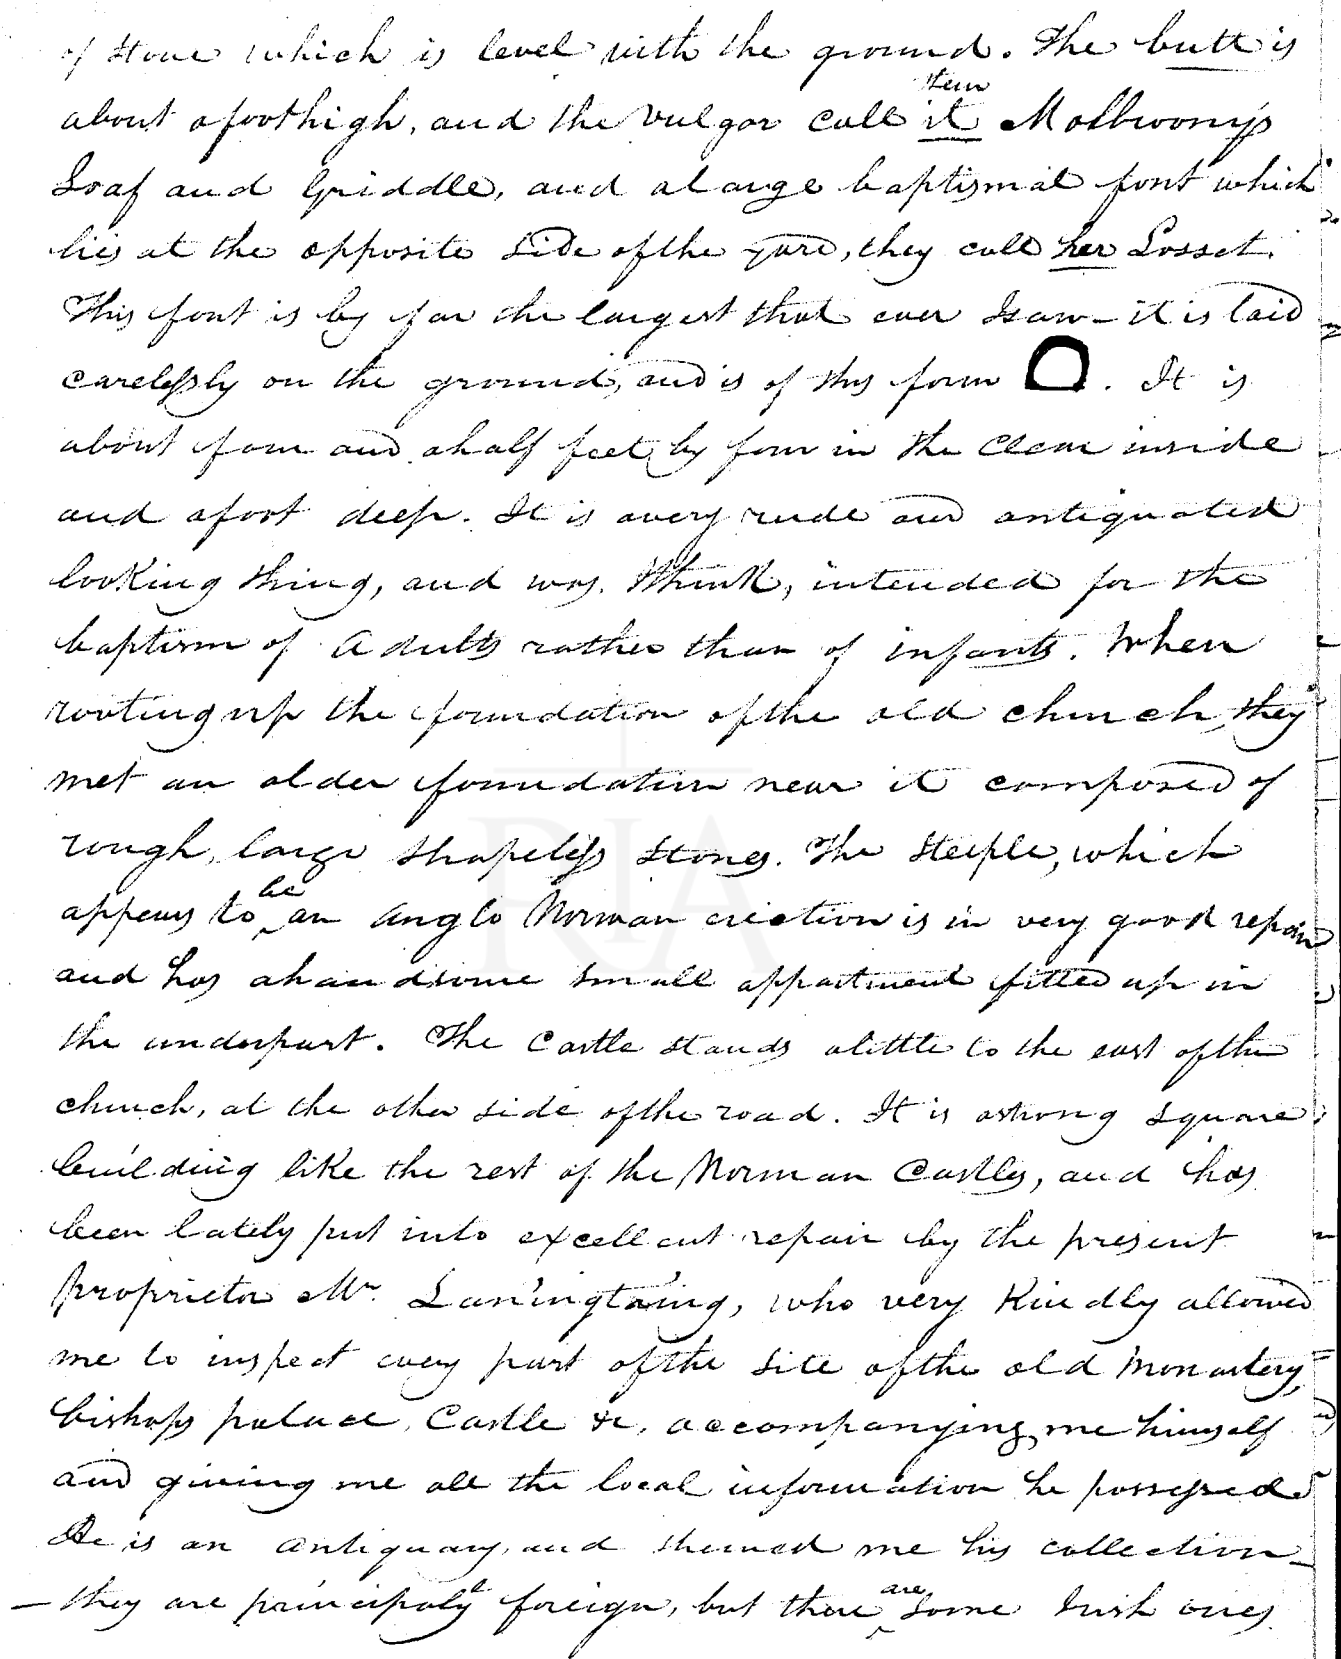 of stone which is level with the ground. The butt is
about a foot high, and the vulgar call it stem Molbwony's
Loaf and Griddle, and a large baptismal font which
lies at the opposite side of the yard, they call her Losset.
This font is by far the largest that ever I saw – it is laid
carelessly on the ground, and is of this form . It is
about four and a half feet by four in the clear inside
and a foot deep. It is a very rude and antiquated
looking thing, and was. I think, intended for the
baptism of Adults rather than of infants. When
rooting up the foundation of the old church, they
met an older foundation near it composed of
rough, large shapeless stones. The steeple, which
appears to be an Anglo Norman erection is in very good repair
and has a handsome small appartment fitted up in
the underpart. The Castle stands a little to the east of the
church, at the other side of the road. It is a strong square
building like the rest of the Norman Castles, and has
been lately put into excellent repair by the present
proprietor Mr. who very kindly allowed
me to inspect every part of the site of the old monastery,
bishops palace, Castle &c, accompanying me himself
and giving me all the local information he possessed.
He is an antiquary, and shewed me his collection –
– they are principally foreign, but there are some Irish ones
RIA